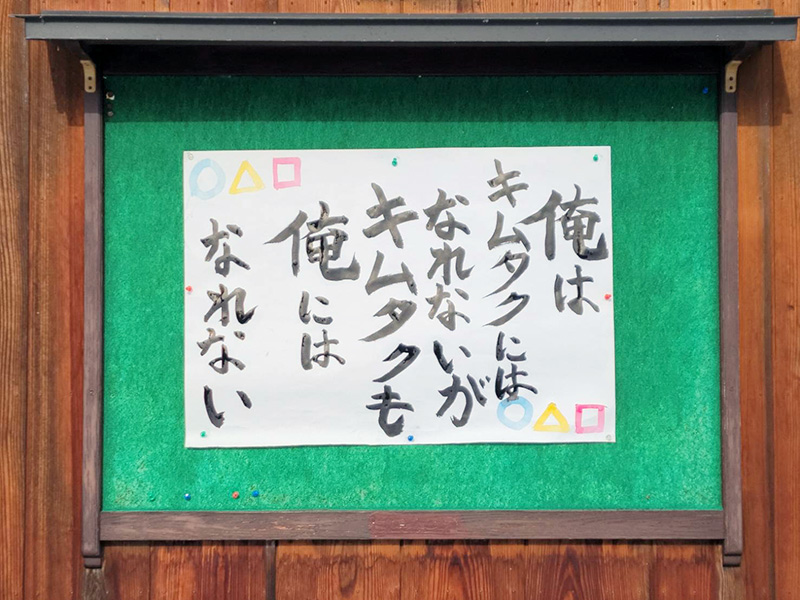 俺は
キムタクには
なれないが
キムタクも
俺には
なれない